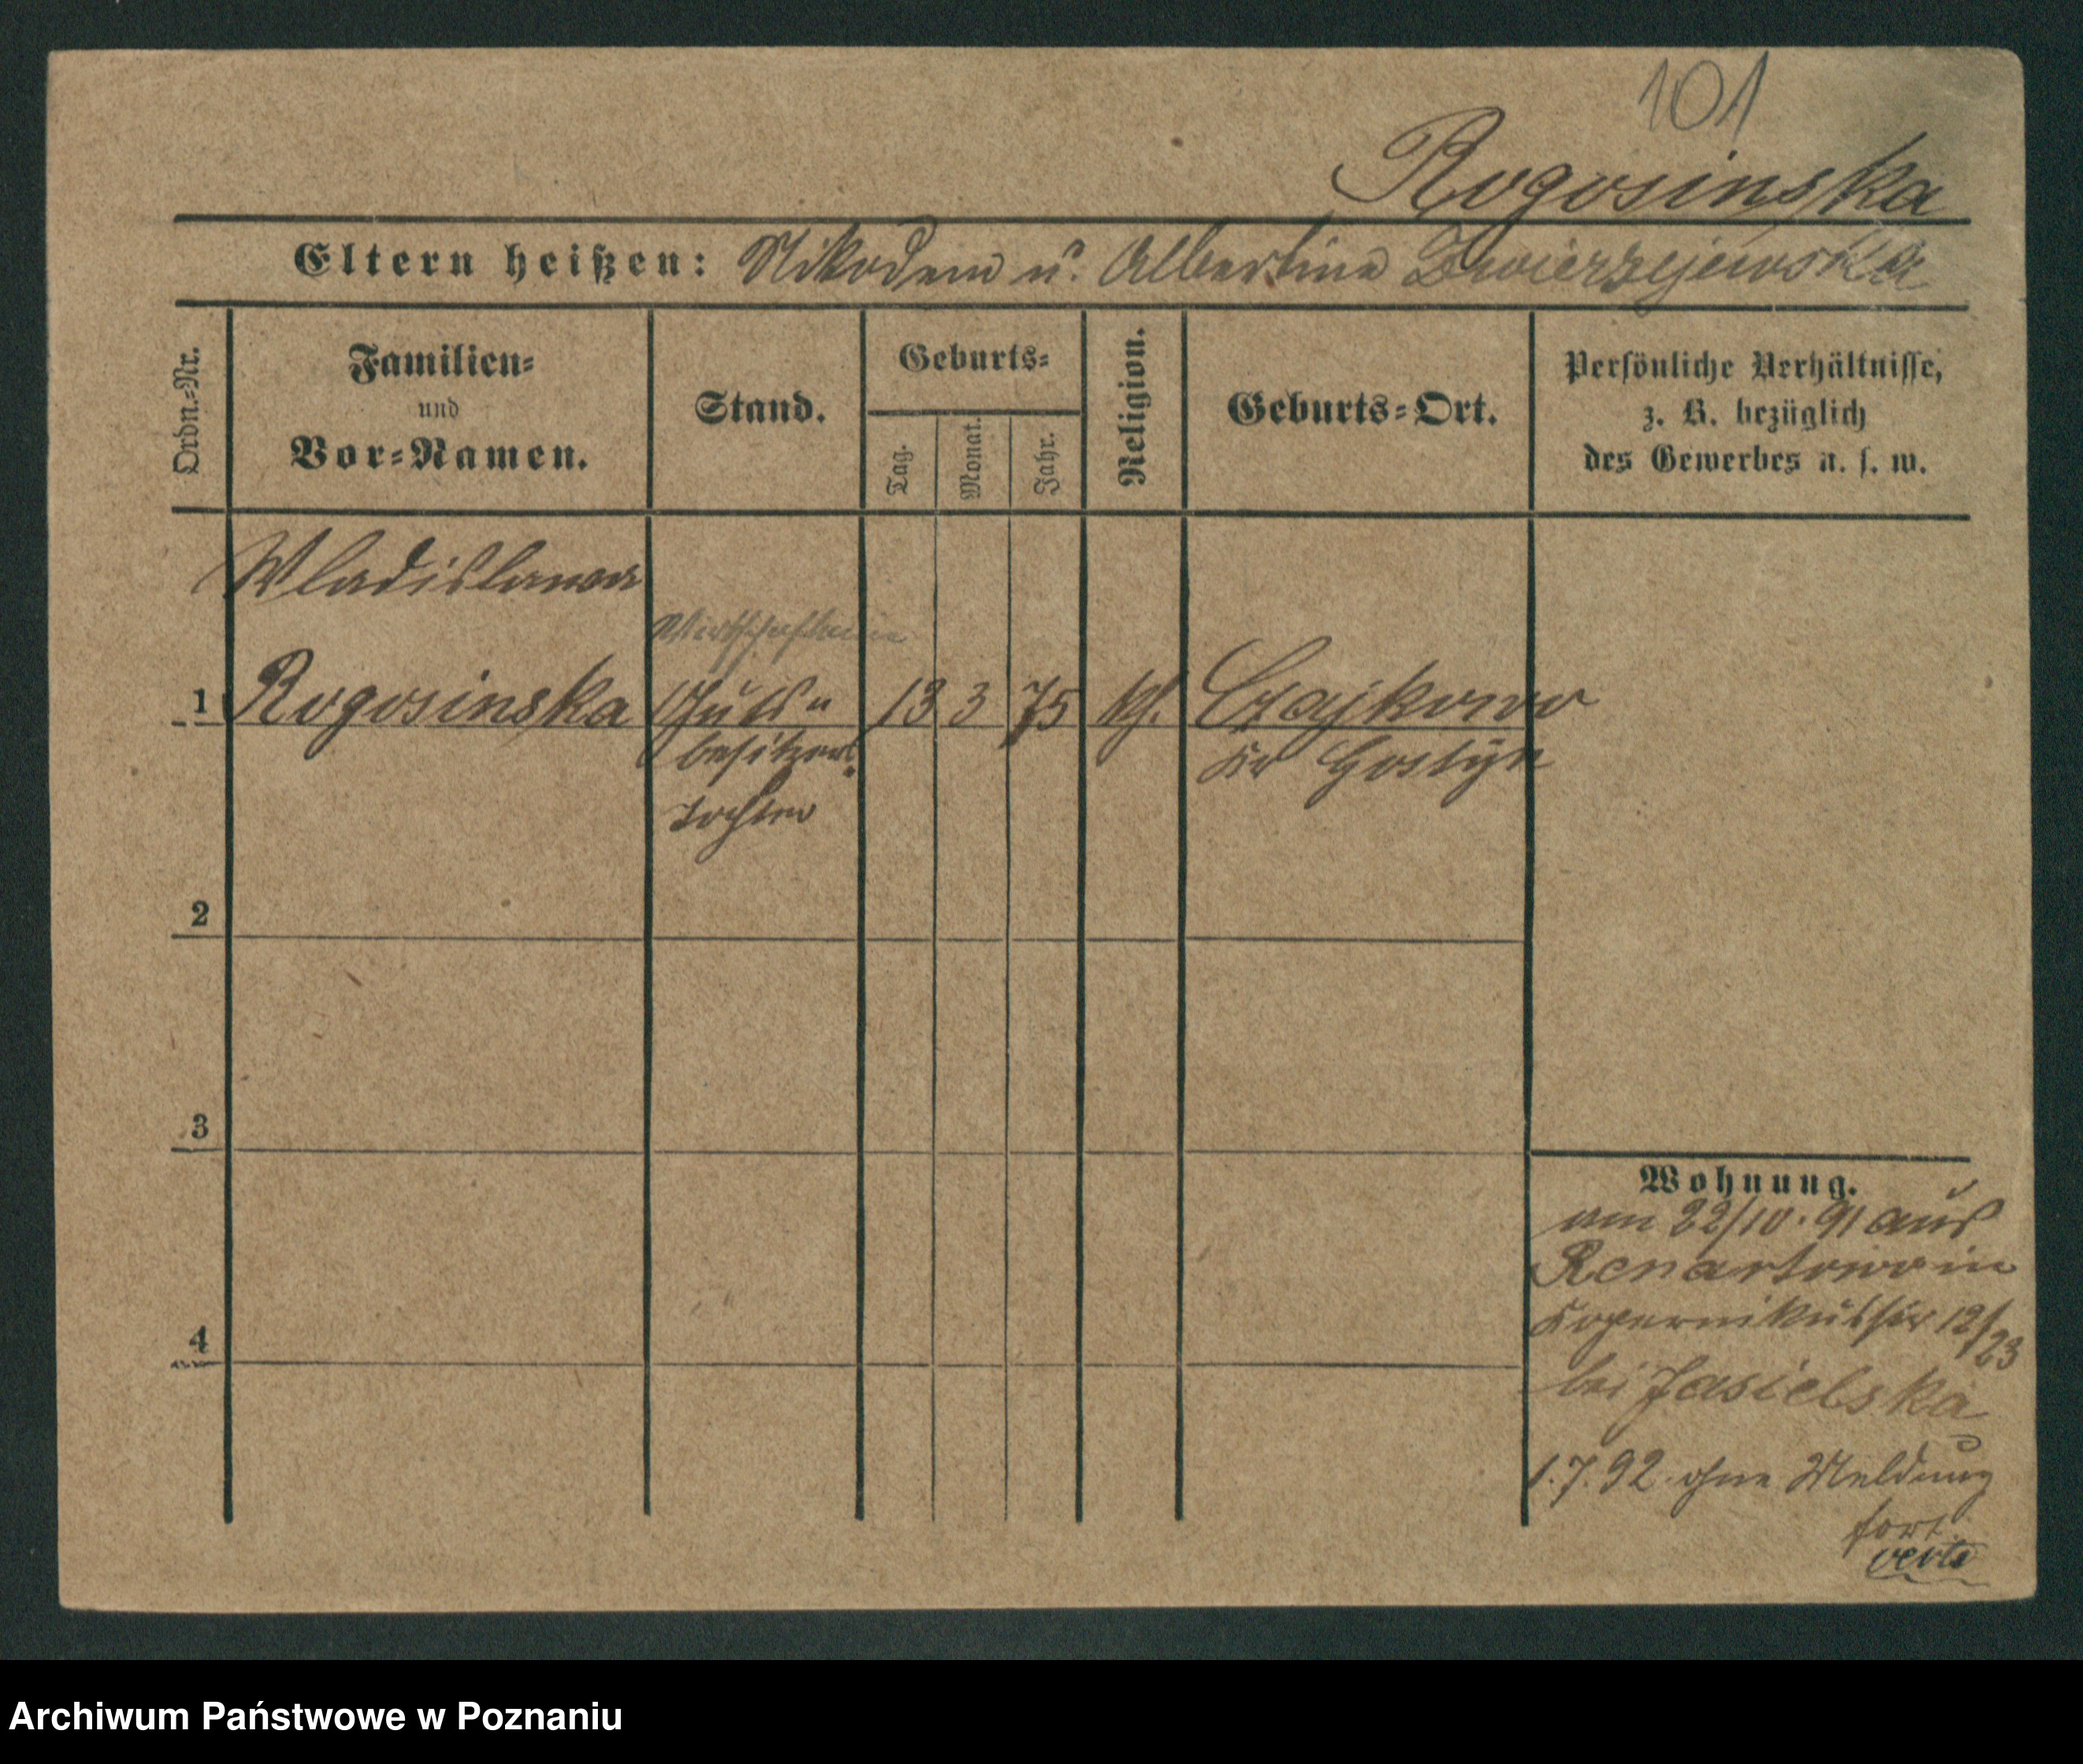 101
Rogosinska
Eltern heißen: Nikodem u. Albertine Zwierzejewska
Ordn.-Nr.
Familien-
und
Vor-Namen.
Stand.
Geburts-
Tag.
Monat.
Jahr.
Religion.
Geburts-Ort.
Persönliche Verhältnisse,
z. B. bezüglich
des Gewerbes u. s. w.
Wladislawa
1 Rogosinska Guts- 13 3 75 kth. Czajkowo
besitzers
tochter
Kr Gostyn
2
3
4
Wohnung.
am 22/10.91 aus
Renartowo in
Kopernikusstr 12/23
bei Jasielska
1.7.92 ohne Meldung
fort
verte
Archiwum Państwowe w Poznaniu